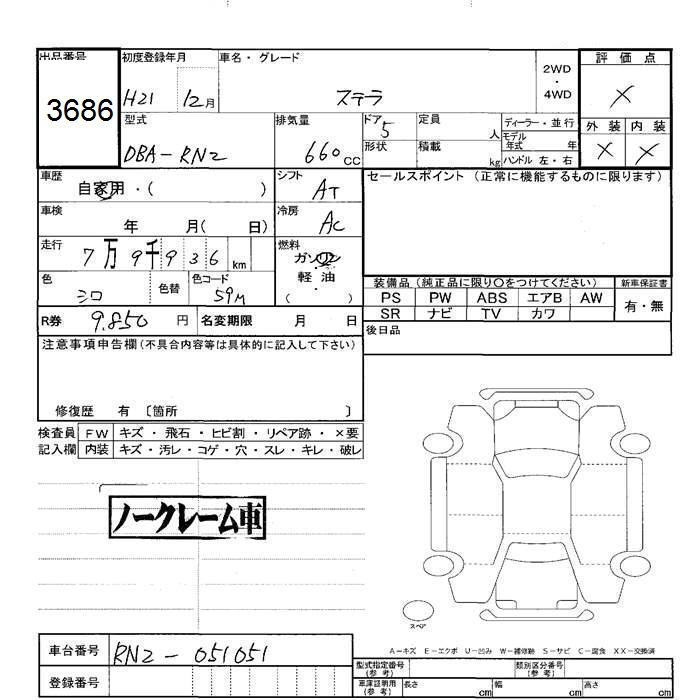 出品番号
3686
初度登録年月
H21 12月
車名・グレード
ステラ
2WD
・
4WD
評価点
×
外装 内装
× ×
型式
DBA-RN2
排気量
660cc
ドア
5
形状
定員
人
積載
kg
ディーラー・並行
モデル
年式 年
ハンドル 左・右
車歴
自家用・( )
シフト
AT
セールスポイント (正常に機能するものに限ります)
車検
年 月( 日)
冷房
AC
走行
7万9千936km
燃料
ガソリン
軽油
( )
色
シロ
色替
色コード
59M
装備品 (純正品に限り〇をつけてください)
新車保証書
PS PW ABS エアB AW
有・無
SR ナビ TV カワ
R券 9.850円
名変期限 月 日
後日品
注意事項申告欄(不具合内容等は具体的に記入して下さい)
修復歴 有 〔箇所 〕
検査員 FW キズ・飛石・ヒビ割・リペア跡・×要
記入欄 内装 キズ・汚レ・コゲ・穴・スレ・キレ・破レ
ノークレーム車
スペア
A-キズ E-エクボ U-凹み W-補修跡 S-サビ C-腐食 XX-交換済
車台番号 RN2-051051
登録番号
型式指定番号
(参考)
類別区分番号
(参考)
車庫証明用
(参考)
長さ cm
幅 cm
高さ cm